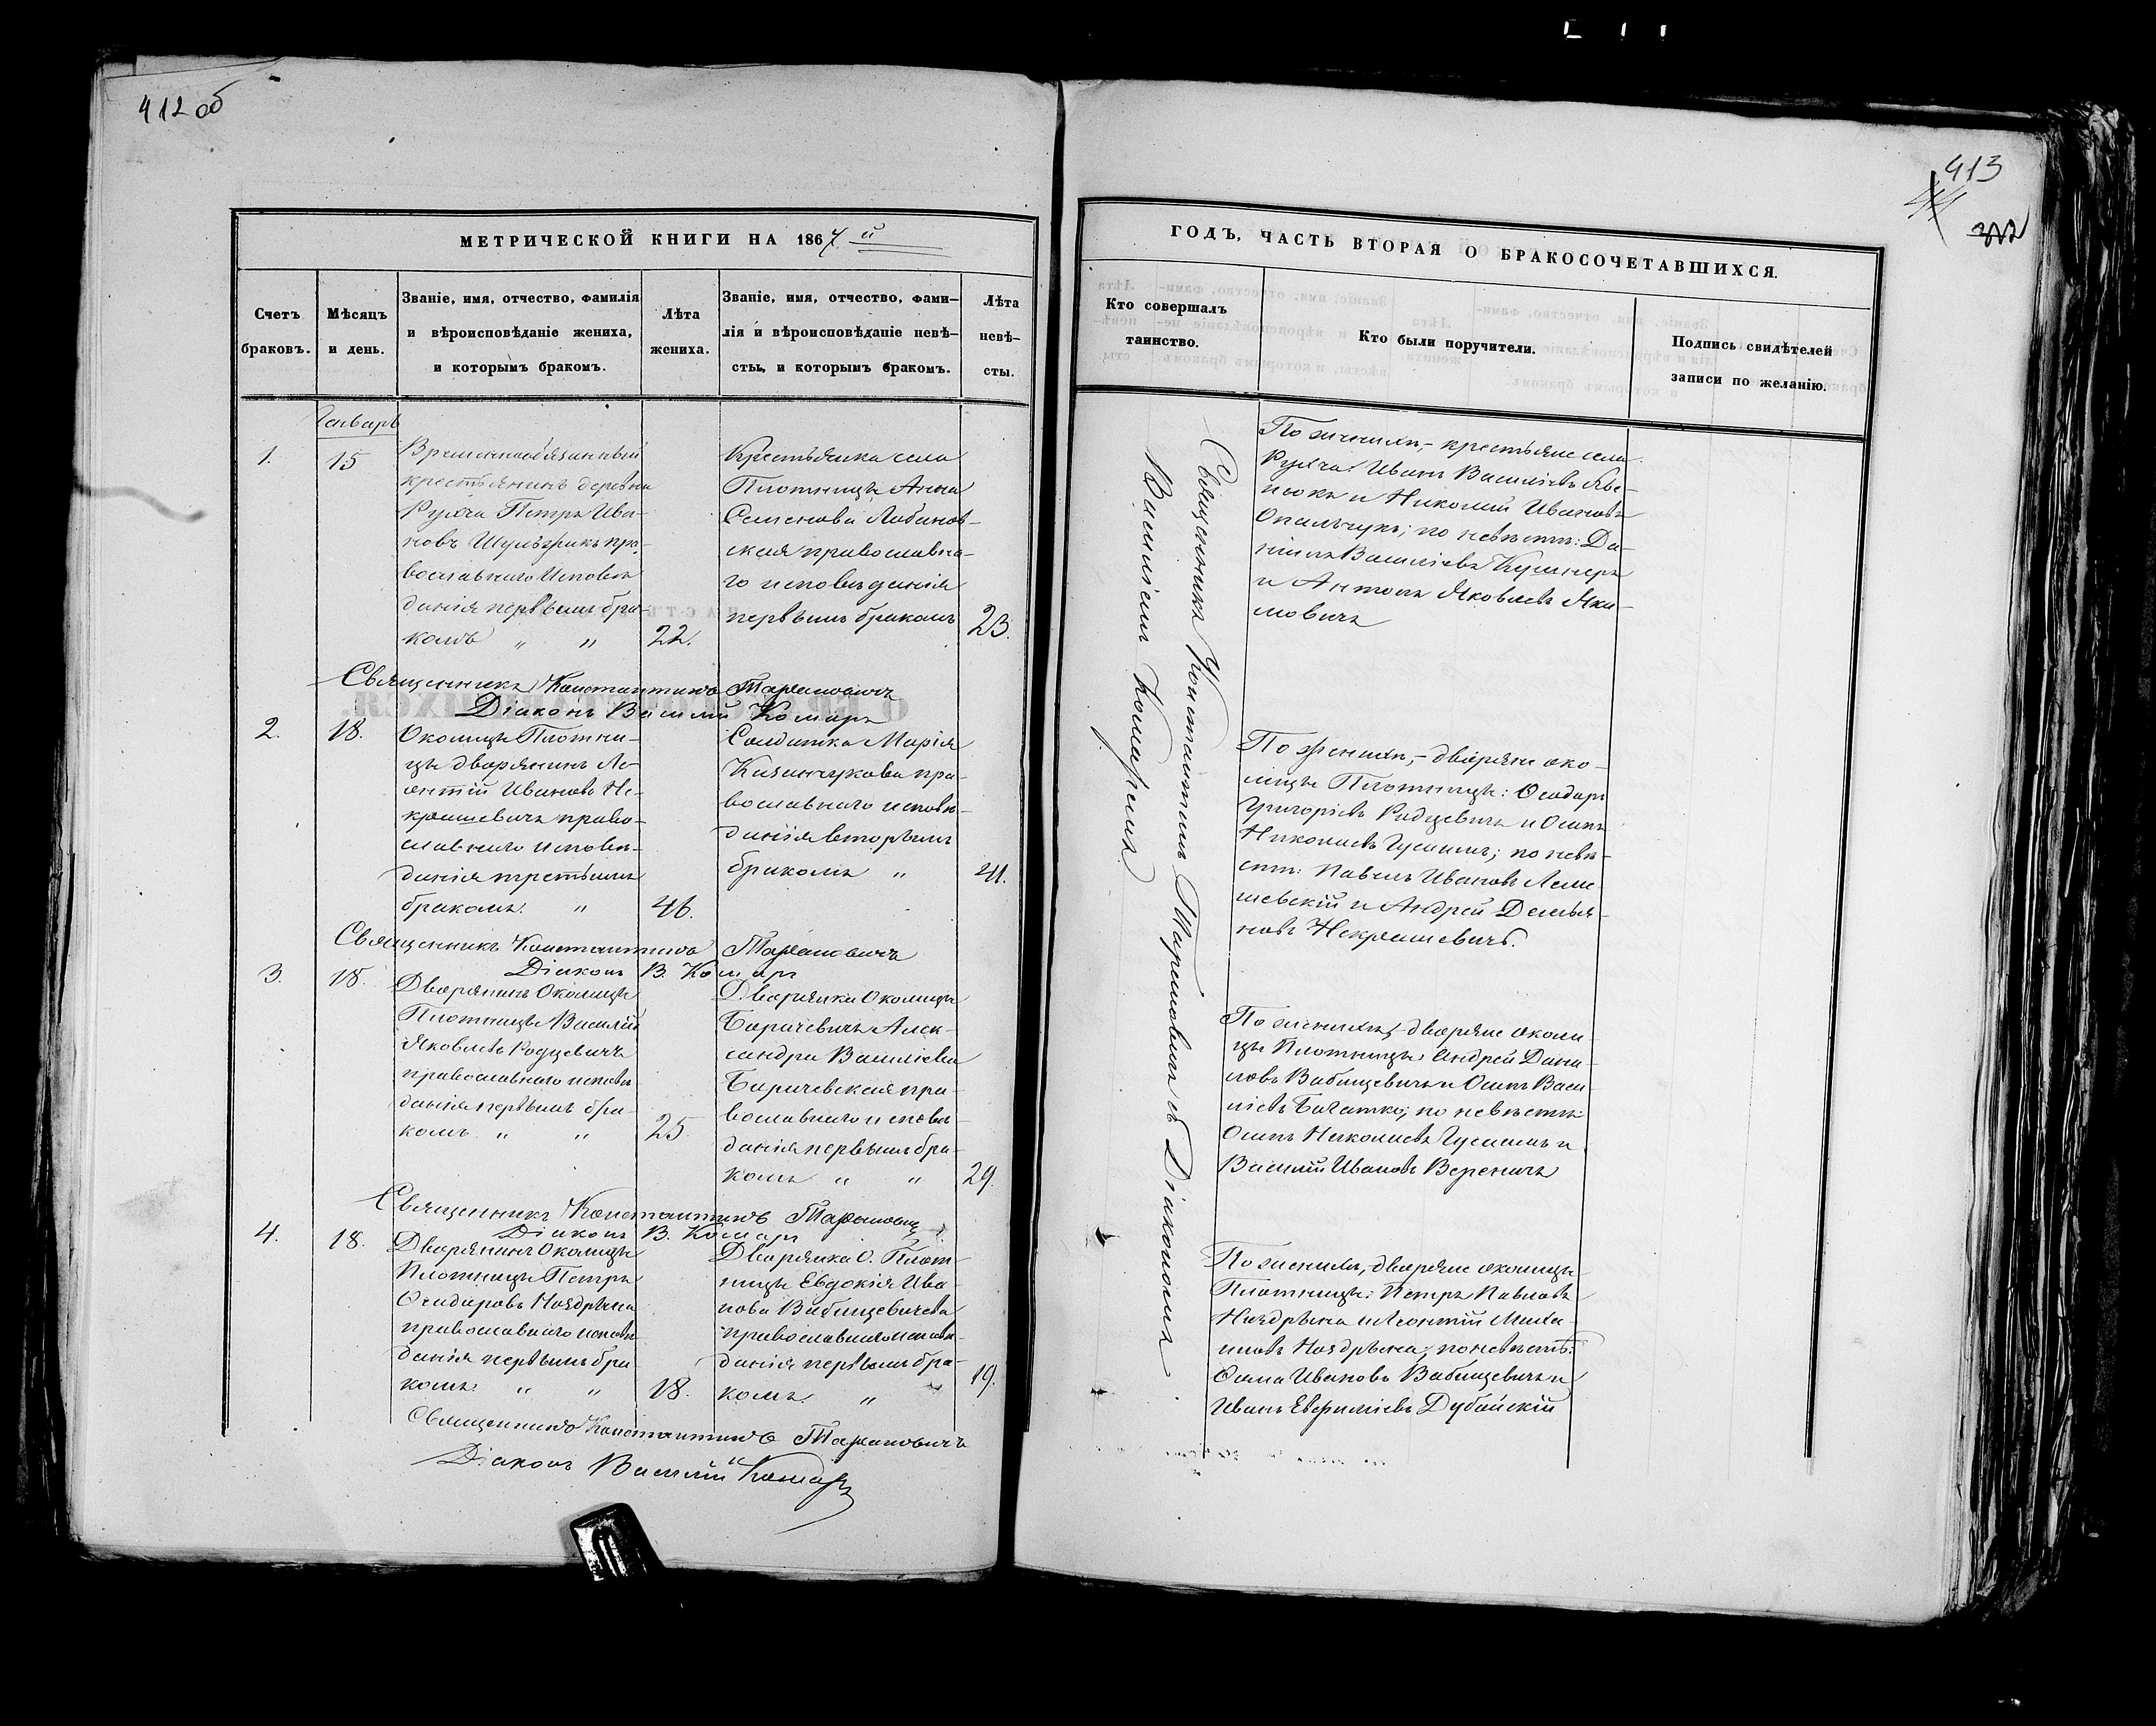 412 об
МЕТРИЧЕСКОЙ КНИГИ НА 1867 й
Счетъ браковъ.
Мѣсяцъ и день.
Званіе, имя, отчество, фамилія
и вѣроисповѣданіе жениха,
и которымъ бракомъ.
Лѣта жениха.
Званіе, имя, отчество, фами–
лія и вѣроисповѣданіе невѣ–
сты, и которымъ бракомъ.
Лѣта невѣ–
сты.
Генварь
1.
15
Временнообязанный
крестьянинъ деревни
Рухча Петръ Ива-
новъ Шульжикъ пра-
вославнаго исповѣ
данія первымъ бра-
комъ „ „
22.
Крестьянка села
Плотницы Анна
Семенова Любинов-
ская православна-
го исповѣданія
первымъ бракомъ
23.
Священникъ Константинъ Тарановичъ
Діаконъ Василій Комаръ
2.
18.
Околицы Плотни-
цы дворянинъ Ле-
онтій Ивановъ Не-
крашевичъ право-
славнаго исповѣ-
данія третьимъ
бракомъ. „
46.
Солдатка Марія
православнаго исповѣ-
данія вторымъ
бракомъ „
41.
Священникъ Константинъ Тарановичъ
Діаконъ В. Комаръ
3.
18.
Дворянинъ Околицы
Плотницы Василій
Яковлевъ Родцевичъ
православнаго исповѣ
данія первымъ бра-
комъ „ „
25.
Дворянка Околицы
Баричевичъ Алек-
сандра Василіева
Баричевская пра-
вославнаго исповѣ-
данія первымъ бра-
комъ „ „
29.
Священникъ Константинъ Тарановичъ
Діаконъ В. Комаръ
4.
18.
Дворянинъ Околицы
Плотницы Петръ
Ѳеодоровъ Ноздрына
православнаго исповѣ
данія первымъ бра
комъ. „ „
18.
Дворянка О. Плот-
ницы Евдокія Ива-
нова Вабищевичева
православнаго исповѣ-
данія первымъ бра-
комъ. „
19.
Священникъ Константинъ Тарановичъ
Діаконъ Василій Комаръ
413
ГОДЪ, ЧАСТЬ ВТОРАЯ О БРАКОСОЧЕТАВШИХСЯ.
Кто совершалъ
таинство.
Кто были поручители.
Подпись свидѣтелей
записи по желанію.
Священникъ Константинъ Тарановичъ съ Діакономъ
Василіемъ Комаремъ
По женихѣ,– крестьяне села
Рухча Иванъ Василіевъ
и Николай Ивановъ
Опальчукъ; по невѣстѣ: Да-
ніилъ Василіевъ Кушнеръ
и Антонъ Яковлевъ Яки-
мовичъ
По женихѣ,– дворяне око-
лицы Плотницы: Ѳеодоръ
Григоріевъ Родцевичъ и Осипъ
Николаевъ Гусакъ; по невѣ-
стѣ: Павелъ Ивановъ Леме-
шевскій и Андрей Демья-
новъ Некрашевичъ.
По женихѣ,– дворяне околи
цы Плотницы Андрей Дани-
ловъ Вабищевичъ и Осипъ Васи-
ліевъ Богатко; по невѣстѣ:
Осипъ Николаевъ Гусакъ и
Василій Ивановъ Веренича
По женихѣ, дворяне околицы
Плотницы: Петръ Павловъ
Ноздрына и Леонтій Миха-
иловъ Ноздрына; по невѣстѣ:
Ѳома Ивановъ Вабищевичъ и
Иванъ Евфиміевъ Дубойскій